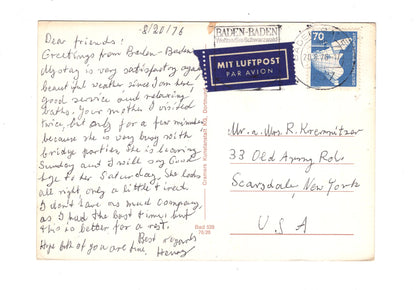 8/20/76
Dear friends!
Greetings from Baden-Baden
My stay is very satisfactory again
beautiful weather since I am here,
good service and relaxing
baths. Your mother I visited
twice, but only for a few minutes
because she is very busy with
bridge parties. She is leaving
Sunday and I will say Good
bye to her Saturday. She looks
all right, only a little tired.
I don't have as much company,
as I had the last times but
this is better for a rest.
Hope both of you are fine,
Best regards
Henry
BADEN-BADEN
MIT LUFTPOST
PAR AVION
70
Cramers Kunstanstalt KG, Dortmund
Bad 538
75/26
Mr. a. Mrs R. Kremnitzer
33 Old Army Rd.
Scarsdale, New York
U S A